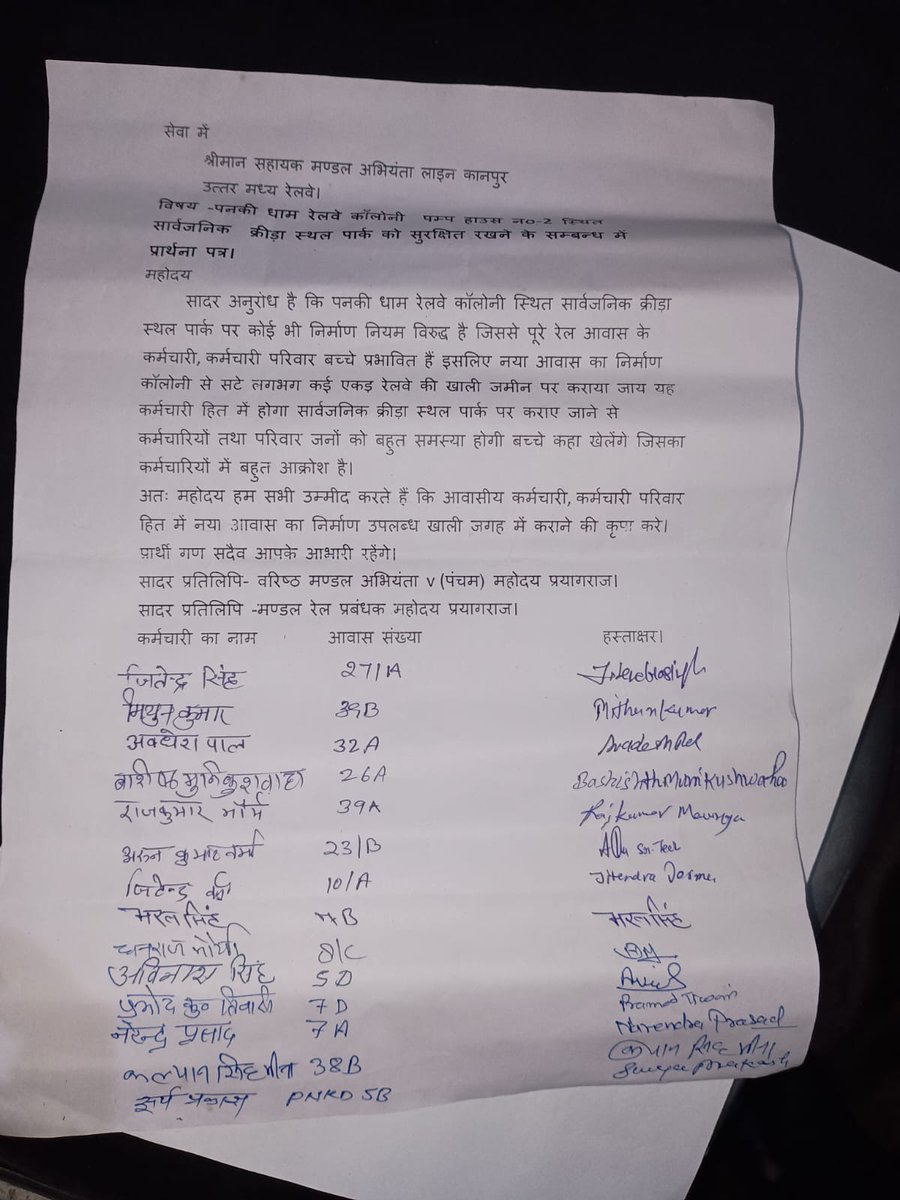 सेवा में
श्रीमान सहायक मण्डल अभियंता लाइन कानपुर
उत्तर मध्य रेलवे।
विषय -पनकी धाम रेलवे कॉलोनी पम्प हाउस न०-2 स्थित
सार्वजनिक क्रीड़ा स्थल पार्क को सुरक्षित रखने के सम्बन्ध में
प्रार्थना पत्र।
महोदय
सादर अनुरोध है कि पनकी धाम रेलवे कॉलोनी स्थित सार्वजनिक क्रीड़ा
स्थल पार्क पर कोई भी निर्माण नियम विरुद्ध है जिससे पूरे रेल आवास के
कर्मचारी, कर्मचारी परिवार बच्चे प्रभावित हैं इसलिए नया आवास का निर्माण
कॉलोनी से सटे लगभग कई एकड़ रेलवे की खाली जमीन पर कराया जाय यह
कर्मचारी हित में होगा सार्वजनिक क्रीड़ा स्थल पार्क पर कराए जाने से
कर्मचारियों तथा परिवार जनों को बहुत समस्या होगी बच्चे कहा खेलेंगे जिसका
कर्मचारियों में बहुत आक्रोश है।
अतः महोदय हम सभी उम्मीद करते हैं कि आवासीय कर्मचारी, कर्मचारी परिवार
हित में नया आवास का निर्माण उपलब्ध खाली जगह में कराने की कृपा करे।
प्रार्थी गण सदैव आपके आभारी रहेंगे।
सादर प्रतिलिपि- वरिष्ठ मण्डल अभियंता v (पंचम) महोदय प्रयागराज।
सादर प्रतिलिपि -मण्डल रेल प्रबंधक महोदय प्रयागराज।
कर्मचारी का नाम आवास संख्या हस्ताक्षर।
जितेन्द्र सिंह 27/1A
मिथुन कुमार 39B Mithun Kumar
अवधेश पाल 32A
मुनि कुशवाहा 26A Bashishth Muni Kushwaha
राजकुमार मौर्य 39A Rajkumar Maurya
अरुन कुमार वर्मा 23/B Sr. Tech
जितेन्द्र वर्मा 10/A Jitendra Verma
भरत सिंह भरत सिंह
मौर्या 8/C
अविनाश सिंह 5D
प्रमोद कु० तिवारी 7D Pramod Tiwari
नरेन्द्र प्रसाद 7A Narendra Prasad
कल्यान सिंह मीना 38B कल्यान सिंह मीना
सूर्य प्रकाश PNKD 5B Surya Prakash